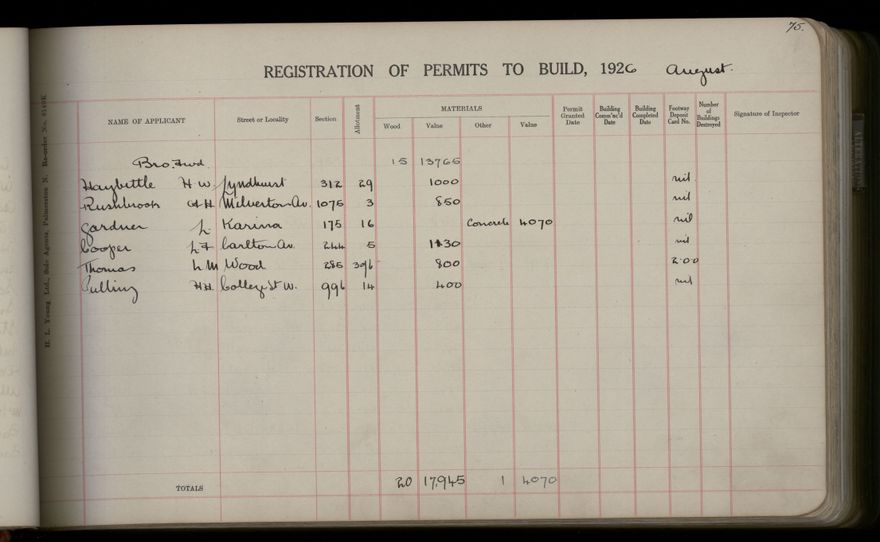 75.
REGISTRATION OF PERMITS TO BUILD, 1926 August.
NAME OF APPLICANT Street or Locality Section Allotment MATERIALS Wood Value Other Value Permit Granted Date Building Comm'nc'd Date Building Completed Date Footway Deposit Card No. Number of Buildings Destroyed Signature of Inspector
Bro. Fwd. 15 13765
Haybittle H W. Lyndhurst 312 29 1000 nil
Rushbrook A H Milverton Av. 1075 3 850 nil
Gardner L. Karina 175 16 Concrete 4070 nil
Cooper L F Carlton Av. 244 5 1130 nil
Thomas L. M Wood 285 800 2.0.0
Pulling H.H. College St W. 996 14 400 nil
TOTALS 20 17,945 1 4070
H. L. Young Ltd., Sole Agents, Palmerston N. Re-order No.
ALTERATIONS